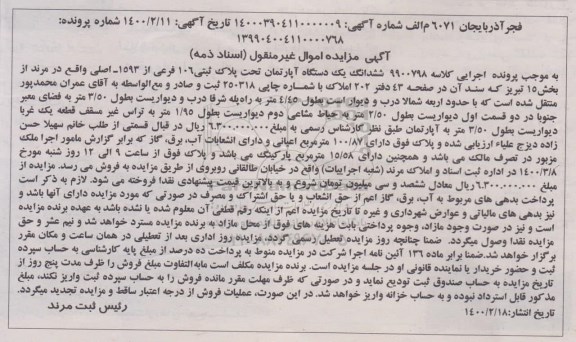 فجرآذربایجان ۶۰۷۱ م الف شماره آگهی: ۱۴۰۰۰۳۹۰۴۱۱۰۰۰۰۰۰۹ تاریخ آگهی: ۱۴۰۰/۲/۱۱ شماره پرونده:
۱۳۹۹۰۴۰۰۴۱۱۰۰۰۰۷۶۸
آگهی مزایده اموال غیرمنقول (اسناد ذمه)
به موجب پرونده اجرایی کلاسه ۹۹۰۰۷۹۸ ششدانگ یک دستگاه آپارتمان تحت پلاک ثبتی ۱۰۶ فرعی از ۱۵۹۳-اصلی واقع در مرند از
بخش ۱۵ تبریز که سند آن در صفحه ۴۳ دفتر ۲۰۲ املاک با شماره چاپی ۲۵۰۳۱۸ ثبت و صادر و مع الواسطه به آقای عمران محمدپور
منتقل شده است که با حدود اربعه شمالا درب و دیوار است بطول ۴/۴۵ متر به راه پله شرقا درب و دیواریست بطول ۳/۵۰ متر به فضای معبر
جنوبا در دو قسمت اول دیواریست بطول ۲/۵۰ متر به حیاط مشاعی دوم دیواریست بطول ۱/۹۵ متر به تراس غیر مسقف قطعه یک غربا
دیواریست بطول ۳/۵۰ متر به آپارتمان طبق نظر کارشناس رسمی به مبلغ ۶.۳۰۰.۰۰۰.۰۰۰ ریال در قبال قسمتی از طلب خانم سهیلا حسن
زاده دیزج علیاء ارزیابی شده و پلاک فوق دارای ۱۰۰/۸۷ مترمربع اعیانی و دارای انشعابات آب، برق، گاز که برابر گزارش مامور اجرا ملک
مزبور در تصرف مالک می باشد و همچنین دارای ۱۵/۵۸ مترمربع پارکینگ می باشد و پلاک فوق از ساعت ۹ الی ۱۲ روز شنبه مورخ
۱۴۰۰/۳/۸ در اداره ثبت اسناد و املاک مرند (شعبه اجراییات) واقع در خیابان طالقانی روبروی از طریق مزایده به فروش می رسد. مزایده از
مبلغ ۶.۳۰۰.۰۰۰.۰۰۰ ریال معادل ششصد و سی میلیون تومان شروع و به بالاترین قیمت پیشنهادی نقدا فروخته می شود. لازم به ذکر است
پرداخت بدهی های مربوط به آب، برق، گاز اعم از حق انشعاب و یا حق اشتراک و مصرف در صورتی که مورد مزایده دارای آنها باشد و
نیز بدهی های مالیاتی و عوارض شهرداری و غیره تا تاریخ مزایده اعم از اینکه رقم قطعی آن معلوم شده یا نشده باشد به عهده برنده مزایده
است و نیز در صورت وجود مازاد، وجوه پرداختی بابت هزینه های فوق از محل مازاد به برنده مزایده مسترد خواهد شد و نیم عشر و حق
مزایده نقدا وصول میگردد. ضمنا چنانچه روز مزایده تعطیل رسمی گردد، مزایده روز اداری بعد از تعطیلی در همان ساعت و مکان مقرر
برگزار خواهد شد.ضمنا برابر ماده ۱۳۶ آئین نامه اجرا شرکت در مزایده منوط به پرداخت ده درصد از مبلغ پایه کارشناسی به حساب سپرده
ثبت و حضور خریدار یا نماینده قانونی او در جلسه مزایده است. برنده مزایده مکلف است مابه التفاوت مبلغ فروش را ظرف مدت پنج روز از
تاریخ مزایده به حساب صندوق ثبت تودیع نماید و در صورتی که ظرف مهلت مقرر مانده فروش را به حساب سپرده ثبت واریز نکند، مبلغ
مذکور قابل استرداد نبوده و به حساب خزانه واریز خواهد شد. در این صورت، عملیات فروش از درجه اعتبار ساقط و مزایده تجدید میگردد.
تاریخ انتشار: ۱۴۰۰/۲/۱۸
رئیس ثبت مرند